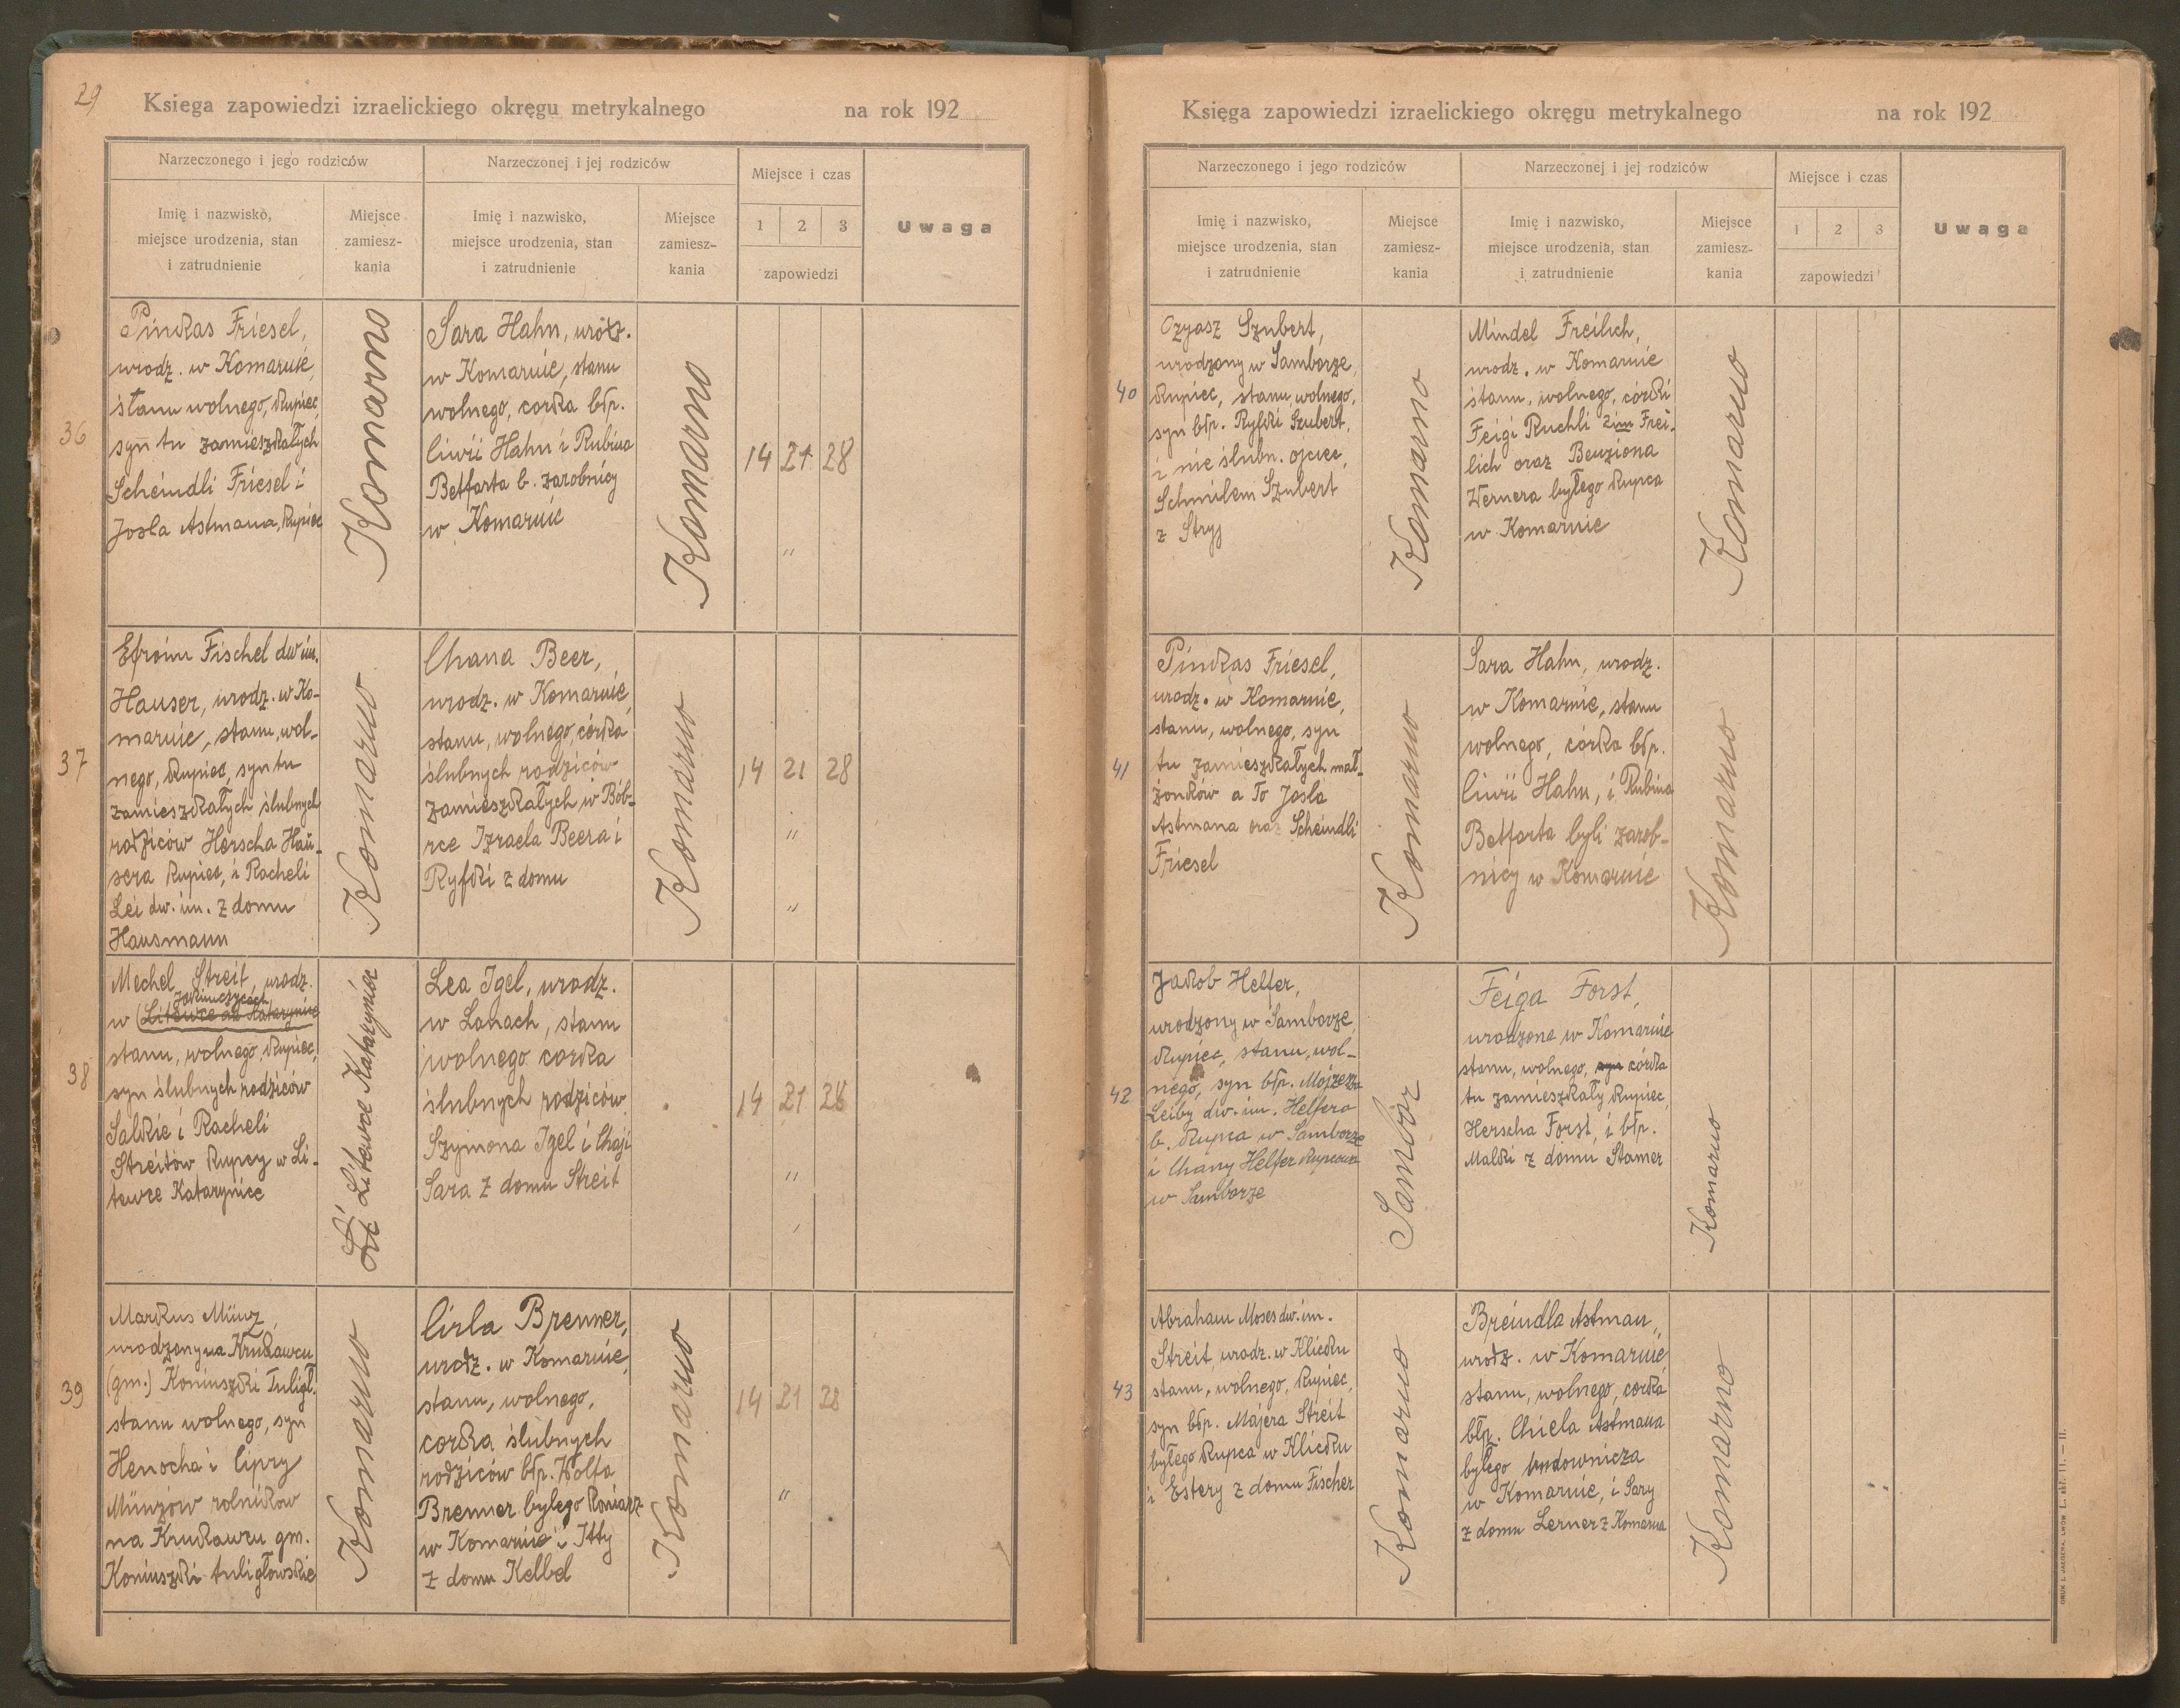 29
Księga zapowiedzi izraelickiego okręgu metrykalnego na rok 192
Narzeczonego i jego rodziców
Narzeczonej i jej rodziców
Miejsce i czas
Uwaga
Imię i nazwisko,
miejsce urodzenia, stan
i zatrudnienie
Miejsce
zamiesz-
kania
Imię i nazwisko,
miejsce urodzenia, stan
i zatrudnienie
Miejsce
zamiesz-
kania
1 2 3
zapowiedzi
36
Pinkas Friesel,
urodz. w Komarnie,
stanu wolnego, kupiec,
syn tu zamieszkałych
Scheindli Friesel i
Josla Astmana, kupiec
Komarno
Sara Hahn, urodz.
w Komarnie, stanu
wolnego, corka błp.
Ciwii Hahn i Rubina
Betfarta b. zarobnicy
w Komarnie
Komarno
14 21 28
"
37
Efroim Fischel dw im.
Hauser, urodz. w Ko-
marnie, stanu, wol-
nego, kupiec, syn tu
zamieszkałych ślubnych
rodziców Herscha Hau-
sera kupiec, i Racheli
Lei dw. im. z domu
Hausmann
Komarno
Chana Beer,
urodz. w Komarnie,
stanu, wolnego, córka
ślubnych rodziców
zamieszkałych w Bób-
rce Izraela Beera i
Ryfki z domu
Komarno
14 21 28
"
"
38
Mechel Streit, urodz.
w (Litewce ad Katarynice
stanu, wolnego, kupiec,
syn ślubnych rodziców
Salkie i Racheli
Streitów kupcy w Li-
tewce Katarynice
Litewce Katarynice
Lea Igel, urodz.
w Lanach, stanu
wolnego corka
ślubnych rodziców
Szymona Igel i Chaji
Sara z domu Streit
14 21 28
"
39
Markus Münz,
urodzony na Krukawcu
(gm.) Koniuszki Tuligł.
stanu wolnego, syn
Henocha i Cipry
Münzów rolników
na Krukawcu gm.
Koniuszki tuligłowskie
Komarno
Cirla Brenner,
urodz. w Komarnie,
stanu, wolnego,
corka ślubnych
rodziców błp. Wolfa
Brenner byłego koniarz
w Komarnie i Itty
z domu Kelbel
Komarno
14 21 28
"
Księga zapowiedzi izraelickiego okręgu metrykalnego na rok 192
Narzeczonego i jego rodziców
Narzeczonej i jej rodziców
Miejsce i czas
Uwaga
Imię i nazwisko,
miejsce urodzenia, stan
i zatrudnienie
Miejsce
zamiesz-
kania
Imię i nazwisko,
miejsce urodzenia, stan
i zatrudnienie
Miejsce
zamiesz-
kania
1 2 3
zapowiedzi
40
Ozyasz Szubert,
urodzony w Samborze,
kupiec, stanu, wolnego,
syn błp. Ryfki Szubert,
i nie ślubn. ojciec,
Schmilem Szubert
z Stryj
Komarno
Mindel Freilich,
urodz. w Komarnie
stanu, wolnego, córki
Feigi Ruchli 2 im Frei-
lich oraz Benziona
Wernera byłego kupca
w Komarnie
Komarno
41
Pinkas Friesel,
urodz. w Komarnie,
stanu, wolnego, syn
tu zamieszkałych mał-
żonków a to Josla
Astmana oraz Scheindli
Friesel
Komarno
Sara Hahn, urodz.
w Komarnie, stanu
wolnego, córka błp.
Ciwii Hahn, i Rubina
Betfarta byli zarob-
nicy w Komarnie
Komarno
42
Jakob Helfer,
urodzony w Samborze,
kupiec, stanu, wol-
nego, syn błp. Mojzesza
Leiby dw. im. Helfera
b. kupca w Samborze
i Chany Helfer kupcowa
w Samborze
Sambór
Feiga Forst,
urodzona w Komarnie
stanu, wolnego, syn córka
tu zamieszkały kupiec,
Herscha Forst, i błp.
Malki z domu Stamer
Komarno
43
Abraham Moses dw. im.
Streit, urodz. w Klicku
stanu, wolnego, kupiec,
syn błp. Majera Streit
byłego kupca w Klicku
i Estery z domu Fischer
Komarno
Breindla Astman,
urodz. w Komarnie,
stanu, wolnego, corka
błp. Chiela Astmana
byłego
w Komarnie, i Sary
z domu Lerner z Komarna
Komarno